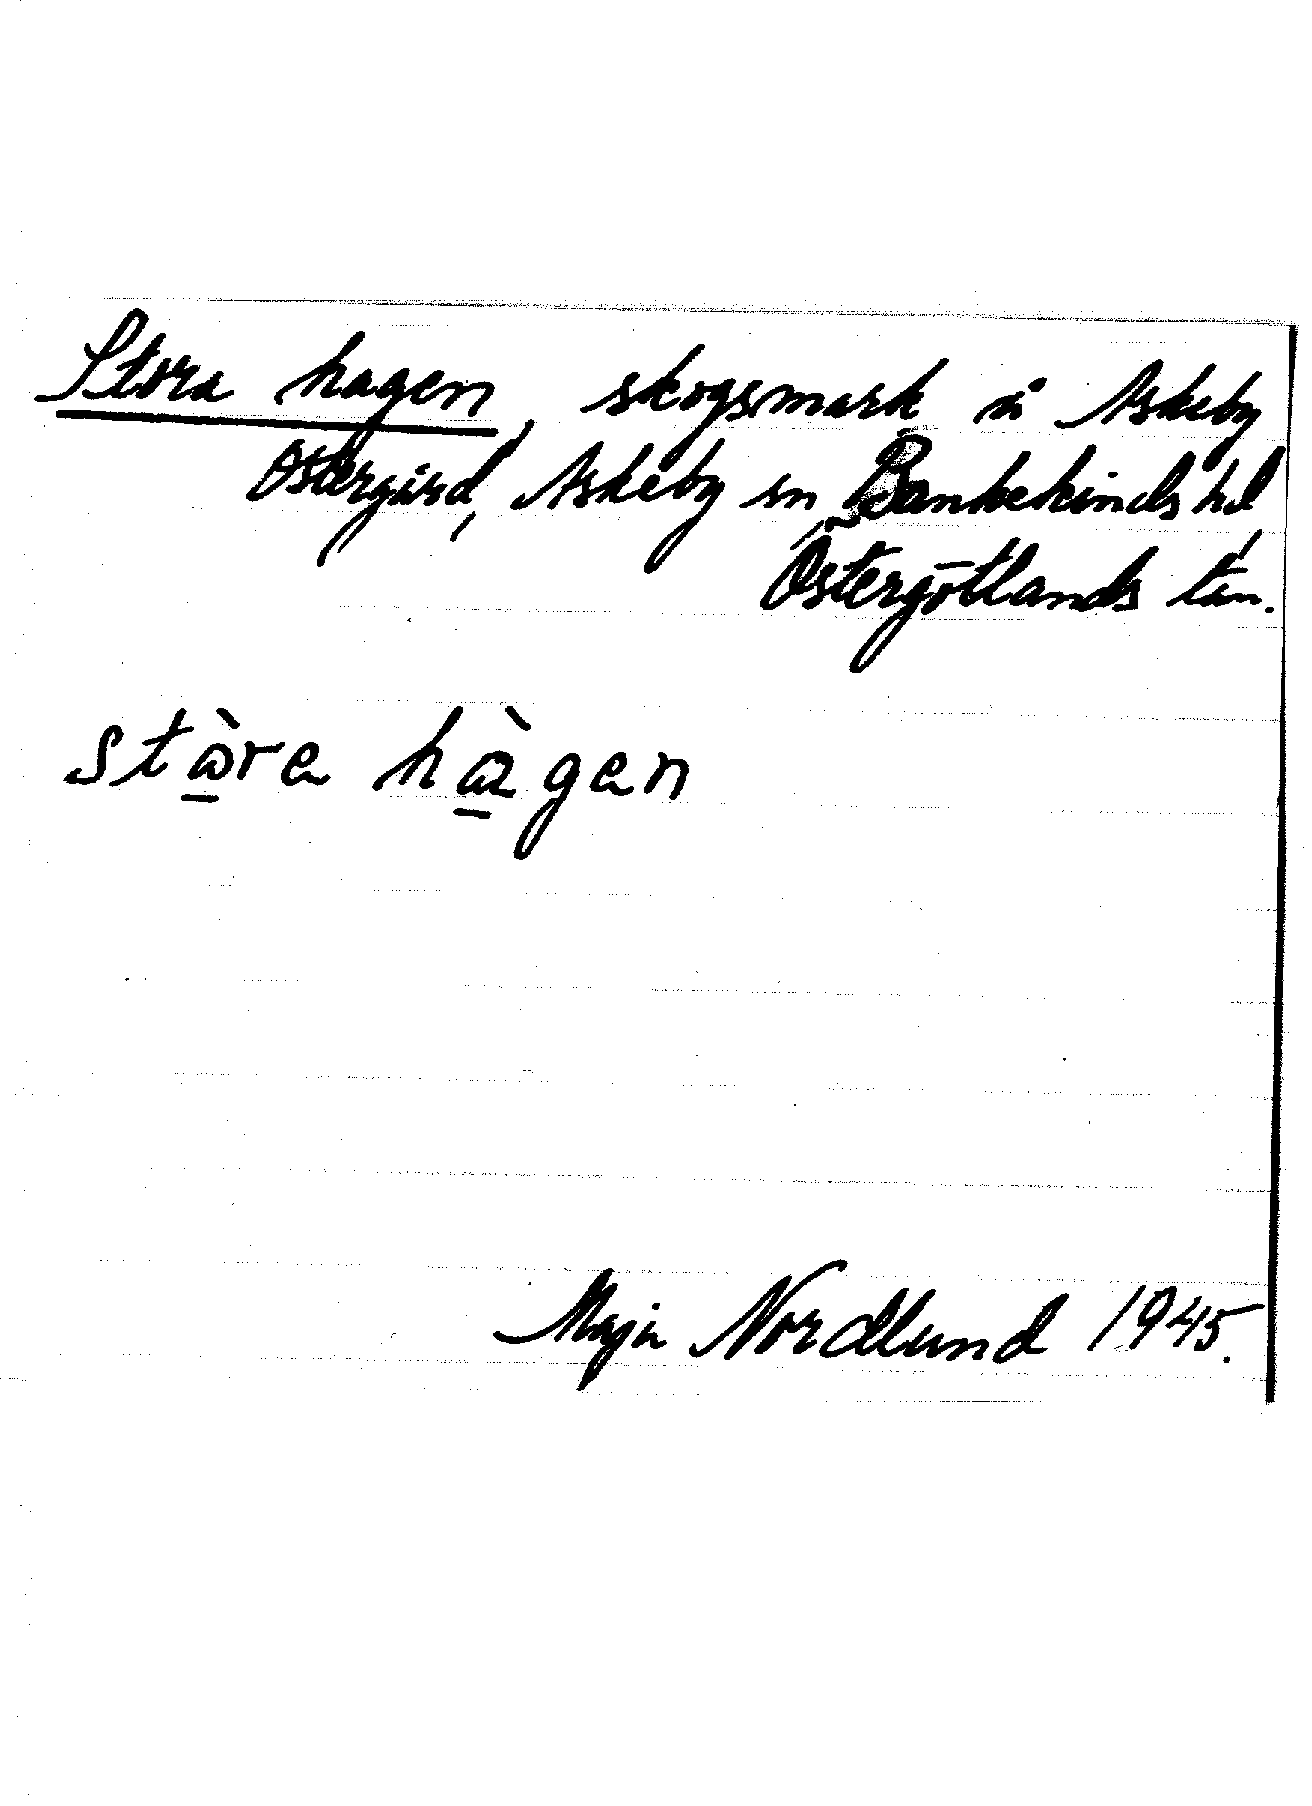 Stora hagen, skogsmark å Askeby
Östergård, Askeby sn, Bankekinds hd,
Östergötlands län.
stàre hàgen
Maja Nordlund 1945.